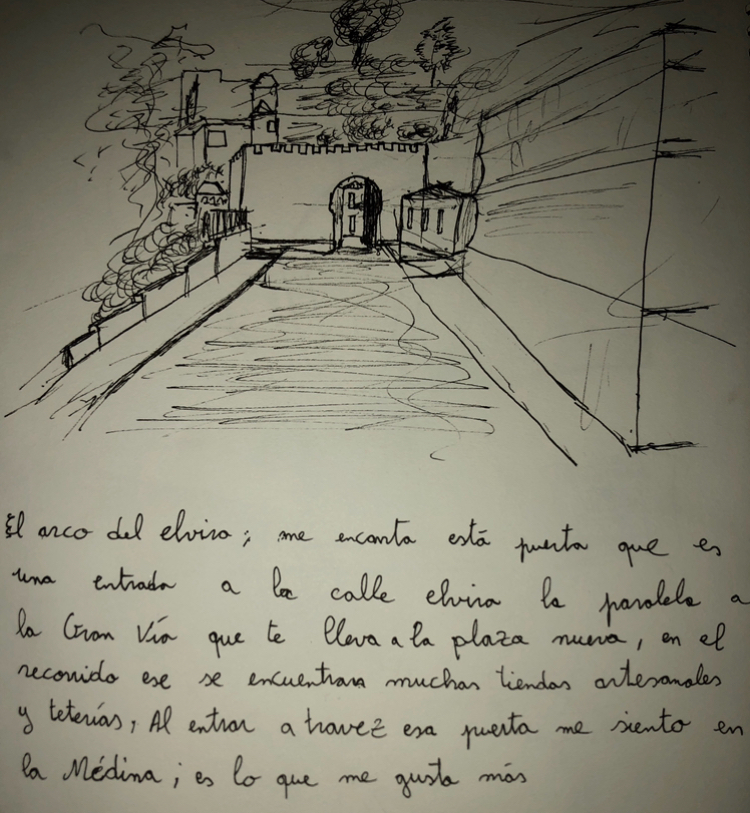 El arco del elvira ; me encanta está puerta que es
una entrada a la calle elvira la paralela a
la Gran Vía que te lleva a la plaza nueva, en el
recorrido ese se encuentran muchas tiendas artesanales
y teterías, Al entrar a travez esa puerta me siento en
la Médina ; es lo que me gusta más